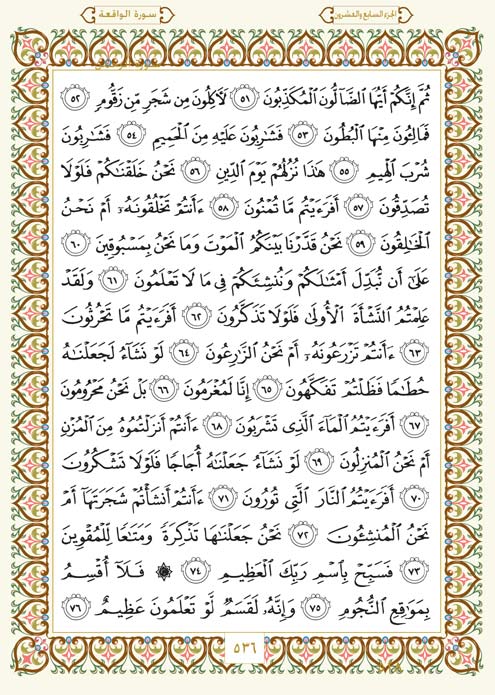 سورة الواقعة
الجزء السابع والعشرون
ثُمَّ إِنَّكُمْ أَيُّهَا ٱلضَّآلُّونَ ٱلْمُكَذِّبُونَ ٥١ لَـَٔاكِلُونَ مِن شَجَرٍ مِّن زَقُّومٍ ٥٢
فَمَالِـُٔونَ مِنْهَا ٱلْبُطُونَ ٥٣ فَشَـٰرِبُونَ عَلَيْهِ مِنَ ٱلْحَمِيمِ ٥٤ فَشَـٰرِبُونَ
شُرْبَ ٱلْهِيمِ ٥٥ هَـٰذَا نُزُلُهُمْ يَوْمَ ٱلدِّينِ ٥٦ نَحْنُ خَلَقْنَـٰكُمْ فَلَوْلَا
تُصَدِّقُونَ ٥٧ أَفَرَءَيْتُم مَّا تُمْنُونَ ٥٨ ءَأَنتُمْ تَخْلُقُونَهُۥٓ أَمْ نَحْنُ
ٱلْخَـٰلِقُونَ ٥٩ نَحْنُ قَدَّرْنَا بَيْنَكُمُ ٱلْمَوْتَ وَمَا نَحْنُ بِمَسْبُوقِينَ ٦٠
عَلَىٰٓ أَن نُّبَدِّلَ أَمْثَـٰلَكُمْ وَنُنشِئَكُمْ فِى مَا لَا تَعْلَمُونَ ٦١ وَلَقَدْ
عَلِمْتُمُ ٱلنَّشْأَةَ ٱلْأُولَىٰ فَلَوْلَا تَذَكَّرُونَ ٦٢ أَفَرَءَيْتُم مَّا تَحْرُثُونَ
٦٣ ءَأَنتُمْ تَزْرَعُونَهُۥٓ أَمْ نَحْنُ ٱلزَّٰرِعُونَ ٦٤ لَوْ نَشَآءُ لَجَعَلْنَـٰهُ
حُطَـٰمًا فَظَلْتُمْ تَفَكَّهُونَ ٦٥ إِنَّا لَمُغْرَمُونَ ٦٦ بَلْ نَحْنُ مَحْرُومُونَ
٦٧ أَفَرَءَيْتُمُ ٱلْمَآءَ ٱلَّذِى تَشْرَبُونَ ٦٨ ءَأَنتُمْ أَنزَلْتُمُوهُ مِنَ ٱلْمُزْنِ
أَمْ نَحْنُ ٱلْمُنزِلُونَ ٦٩ لَوْ نَشَآءُ جَعَلْنَـٰهُ أُجَاجًا فَلَوْلَا تَشْكُرُونَ
٧٠ أَفَرَءَيْتُمُ ٱلنَّارَ ٱلَّتِى تُورُونَ ٧١ ءَأَنتُمْ أَنشَأْتُمْ شَجَرَتَهَآ أَمْ
نَحْنُ ٱلْمُنشِـُٔونَ ٧٢ نَحْنُ جَعَلْنَـٰهَا تَذْكِرَةً وَمَتَـٰعًا لِّلْمُقْوِينَ
٧٣ فَسَبِّحْ بِٱسْمِ رَبِّكَ ٱلْعَظِيمِ ٧٤ ۞ فَلَآ أُقْسِمُ
بِمَوَٰقِعِ ٱلنُّجُومِ ٧٥ وَإِنَّهُۥ لَقَسَمٌ لَّوْ تَعْلَمُونَ عَظِيمٌ ٧٦
٥٣٦